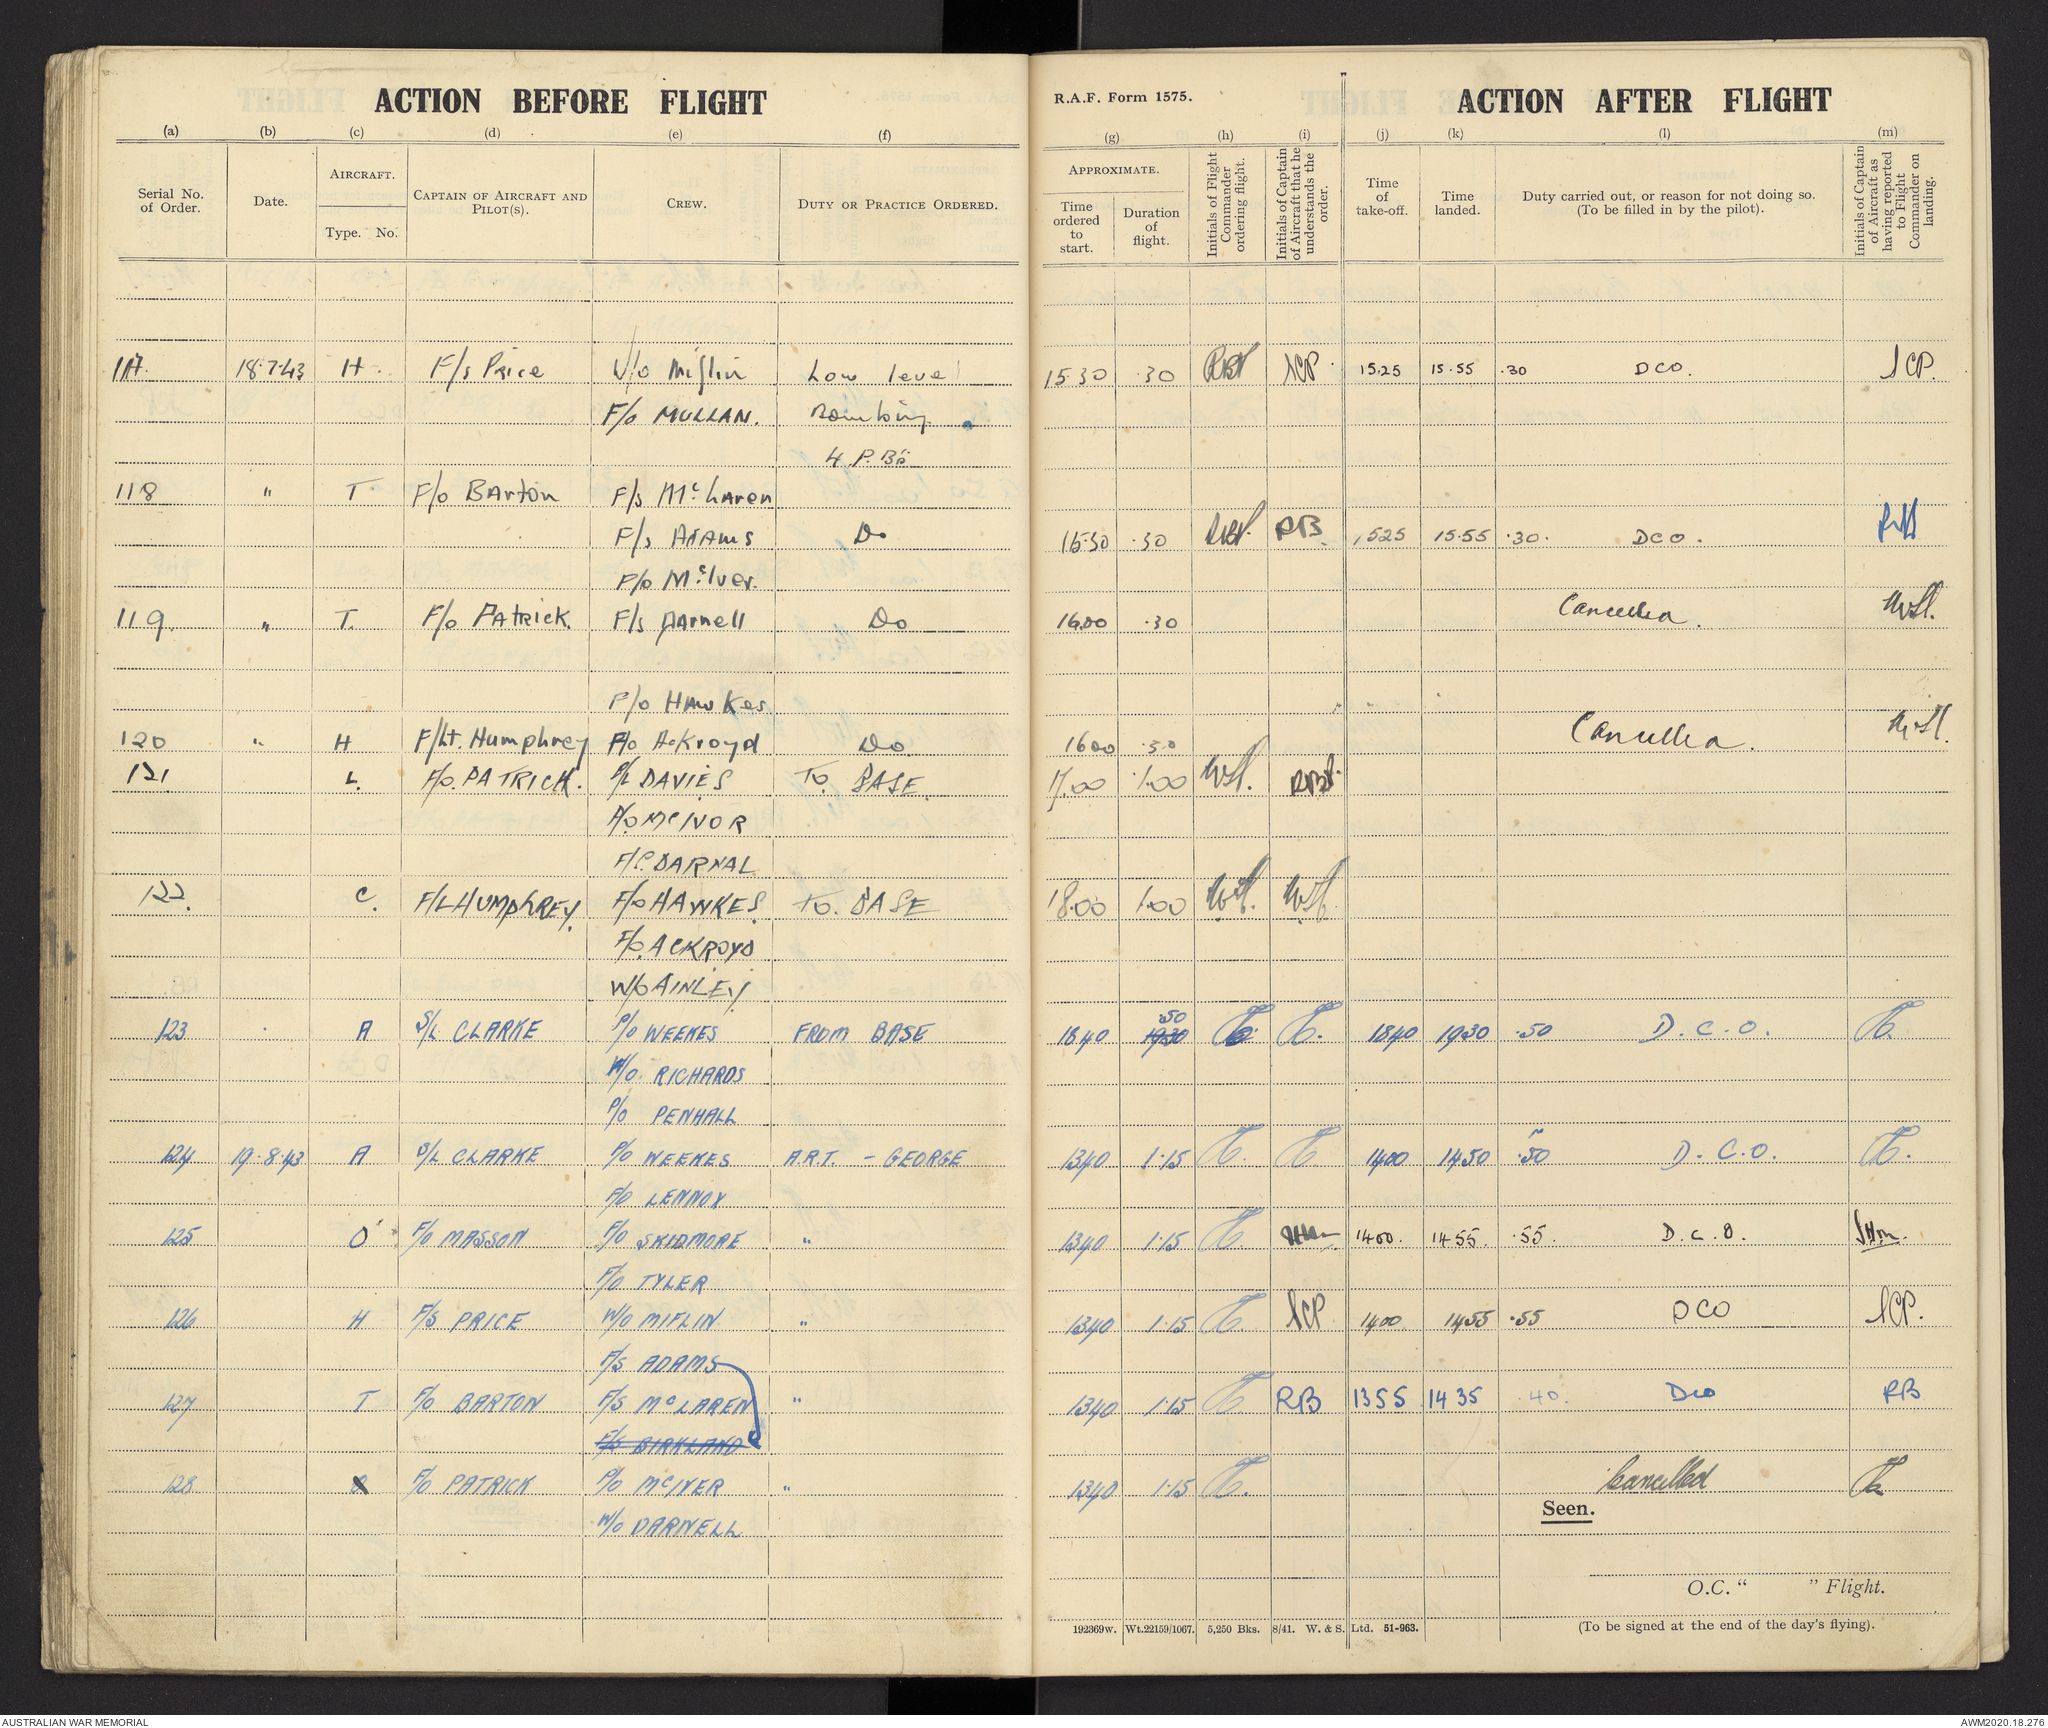 ACTION BEFORE FLIGHT
(a) (b) (c) (d) (e) (f)
Serial No. of Order. Date. AIRCRAFT. Type. No. CAPTAIN OF AIRCRAFT AND PILOT(S). CREW. DUTY OR PRACTICE ORDERED.
R.A.F. Form 1575. ACTION AFTER FLIGHT
(g) (h) (i) (j) (k) (l) (m)
APPROXIMATE. Time ordered to start. Duration of flight. Initials of Flight Commander ordering flight. Initials of Captain of Aircraft that he understands the order. Time of take-off. Time landed. Duty carried out, or reason for not doing so. (To be filled in by the pilot). Initials of Captain of Aircraft as having reported to Flight Commander on landing.
117. 18.7.43 H. F/s Price W/o Miflin Low level 15.30 .30 JCP. 15.25 15.55 .30 DCO. JCP.
F/o MULLAN. Bombing
4 P.B's
118 " T. F/o Barton F/s McLaren
F/s Adams Do 15.30 .30 RB. 1525 15.55 .30. DCO.
P/o McIver.
119. " T. F/o Patrick. F/s Darnell Do 16.00 .30 Cancelled.
P/o Hawkes.
120 " H F/Lt. Humphrey F/o Ackroyd Do. 1600 .30 Cancelled.
121. L. F/O. PATRICK. P/L DAVIES TO. BASE. 17.00 1.00
P/O McIVOR
DARNAL
122. C. F/L HUMPHREY. F/O HAWKES. TO. BASE 18.00 1.00
F/O. ACKROYD
W/O AINLEY
123 A S/L CLARKE P/O WEEKES FROM BASE 1840 19.30 .50 1840 1930 .50 D.C.O.
W/O. RICHARDS
P/O PENHALL
124 19.8.43 A S/L CLARKE P/O WEEKES A.R.T. - GEORGE 1340 1.15 1400 1450 .50 D.C.O.
F/O LENNOX
125 O F/O MASSON F/O SKIDMORE " 1340 1.15 1400. 1455. .55. D.C.O.
F/O TYLER
126 H F/S PRICE W/O MIFLIN " 1340 1.15 JCP 1400 1455 .55 DCO JCP.
F/S ADAMS
127 T F/O BARTON F/S McLAREN " 1340 1.15 RB 1355 1435 .40. DCO RB
F/S BIRKLAND
128 F/O PATRICK P/O McIVER " 1340 1.15 Cancelled
W/O DARNELL
Seen.
O.C. " " Flight.
192369w. Wt.22159/1067. 5,250 Bks. 8/41. W. & S. Ltd. 51-963. (To be signed at the end of the day's flying).
AUSTRALIAN WAR MEMORIAL AWM2020.18.276